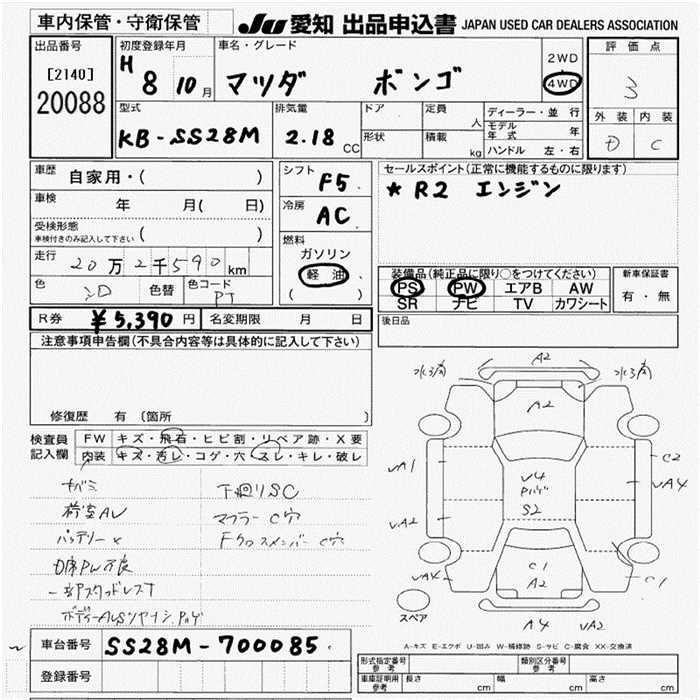 車内保管・守衛保管
JU 愛知 出品申込書 JAPAN USED CAR DEALERS ASSOCIATION
出品番号
[2140]
20088
初度登録年月
H 8 10月
車名・グレード
マツダ ボンゴ
2WD
4WD
評価点
3
外装 内装
D C
型式
KB-SS28M
排気量
2.18 CC
ドア
形状
定員 人
積載 kg
ディーラー・並行
モデル年式 年
ハンドル 左・右
車歴 自家用・( )
車検 年 月( 日)
受検形態
車検付きのみ記入して下さい ( )
走行 20万2千590 km
色 色替 色コード
PT
シフト F5
冷房 AC
燃料
ガソリン
軽油
( )
セールスポイント(正常に機能するものに限ります)
* R2 エンジン
装備品(純正品に限り○をつけてください)
PS PW エアB AW
SR ナビ TV カワシート
新車保証書
有・無
R券 ¥5,390円 名変期限 月 日
後日品
注意事項申告欄(不具合内容等は具体的に記入して下さい)
修復歴 有 (箇所
検査員記入欄
FW キズ・飛石・ヒビ割・リペア跡・X要
内装 キズ・汚レ・コゲ・穴 スレ・キレ・破レ
荷室AU
バッテリー×
D席PW不良
下廻りSC
マフラー C穴
Fクロスメンバー C穴
A2
A2
VA1
VA2
VA4
V4
S2
C2
VA4
C1
C1
A2
A4 VA2
スペア
A-キズ E-エクボ U-凹み W-補修跡 S-サビ C-腐食 XX-交換済
車台番号 SS28M-700085
登録番号
形式指定番号 参考
類別区分番号 参考
車庫証明用 参考 長さ cm 幅 cm 高さ cm